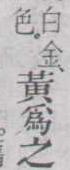 白
色。
金、黃爲之